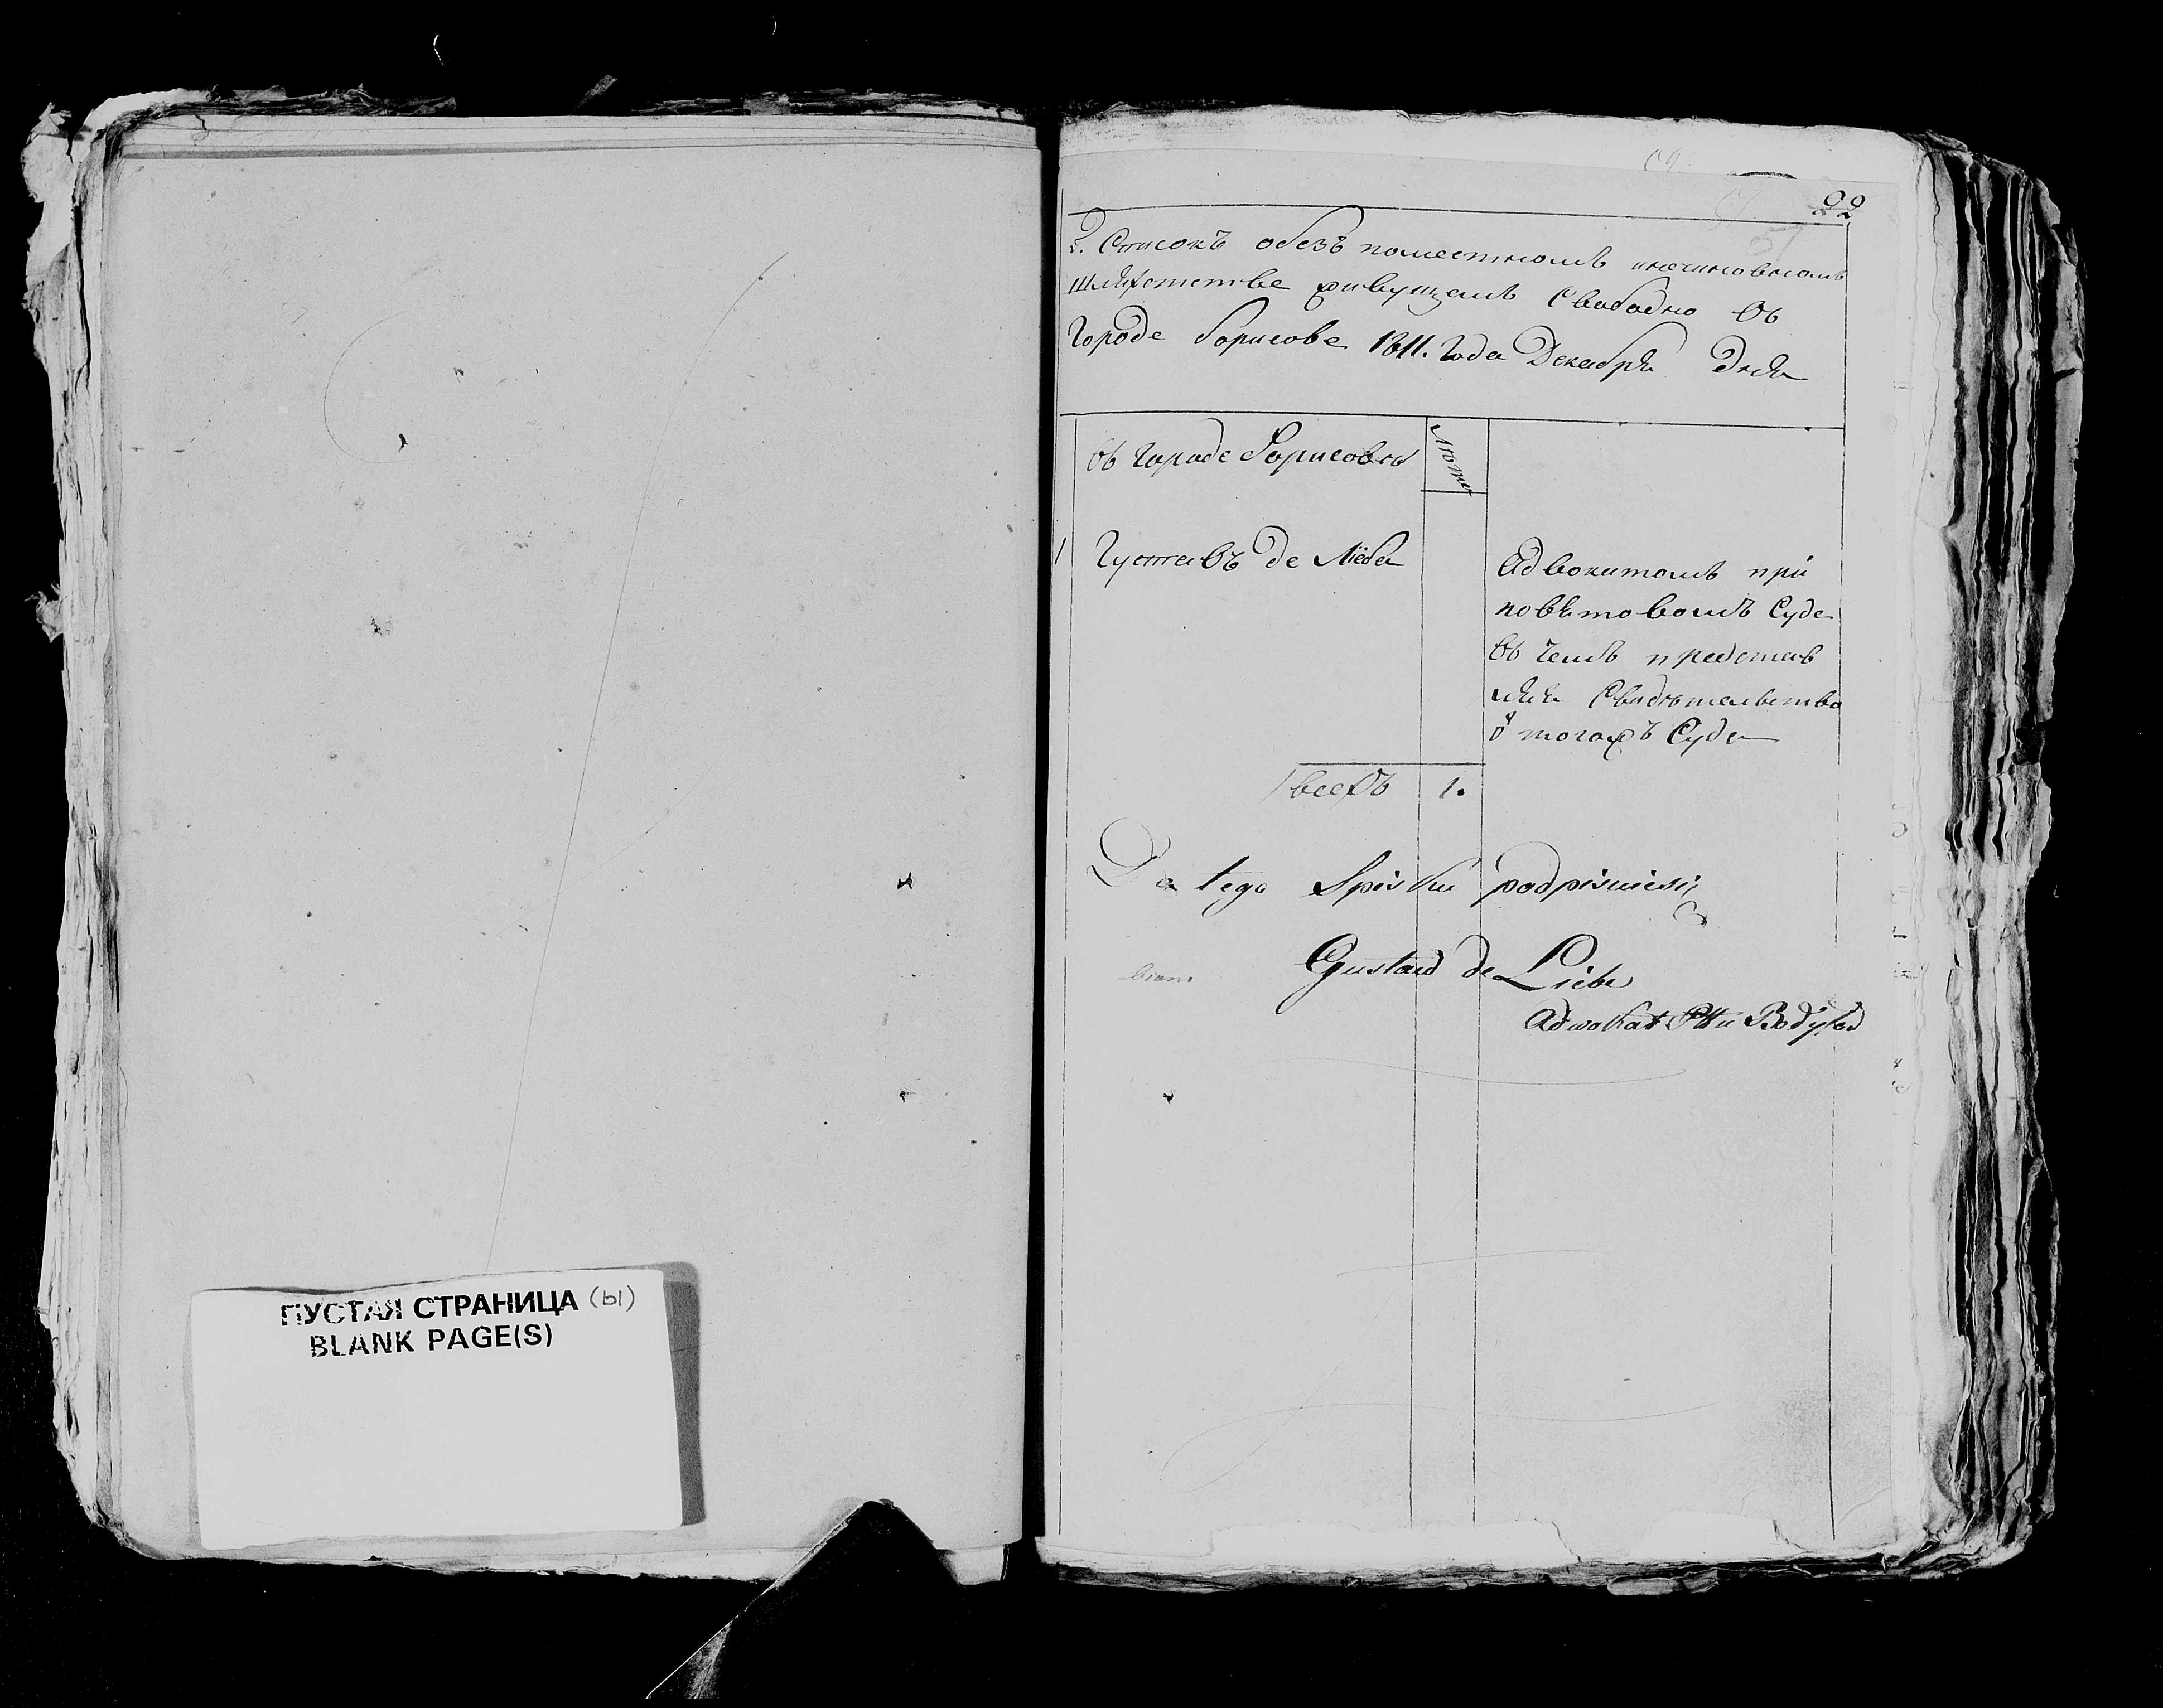 ПУСТАЯ СТРАНИЦА (Ы)
BLANK PAGE(S)
22
2. Списокъ обезъ поместномъ инечиновномъ
Шляхетстве живущемъ Свободно въ
Городе Борисове 1811. Года Декабря Дня
въ городе Борисовѣ
Лѣта
1 Густавъ де Лiеба
Адвокатомъ при
повѣтовомъ Суде
въ чемъ представ
Свидѣтельство
отогожъ Суда
всехъ 1.
Do tego Spisku podpisuiesię
Gustaw de Liebe
Adwokat